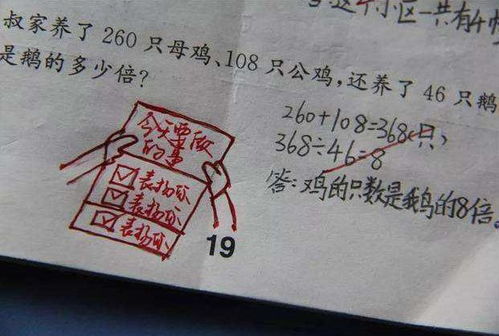 这个小区一共有4
叔家养了 260 只母鸡、108 只公鸡，还养了 46 只鹅
是鹅的多少倍？
260+108=368(只)
368÷46=8
答：鸡的只数是鹅的8倍。
今天要做
的事
表扬你
表扬你
表扬你
19